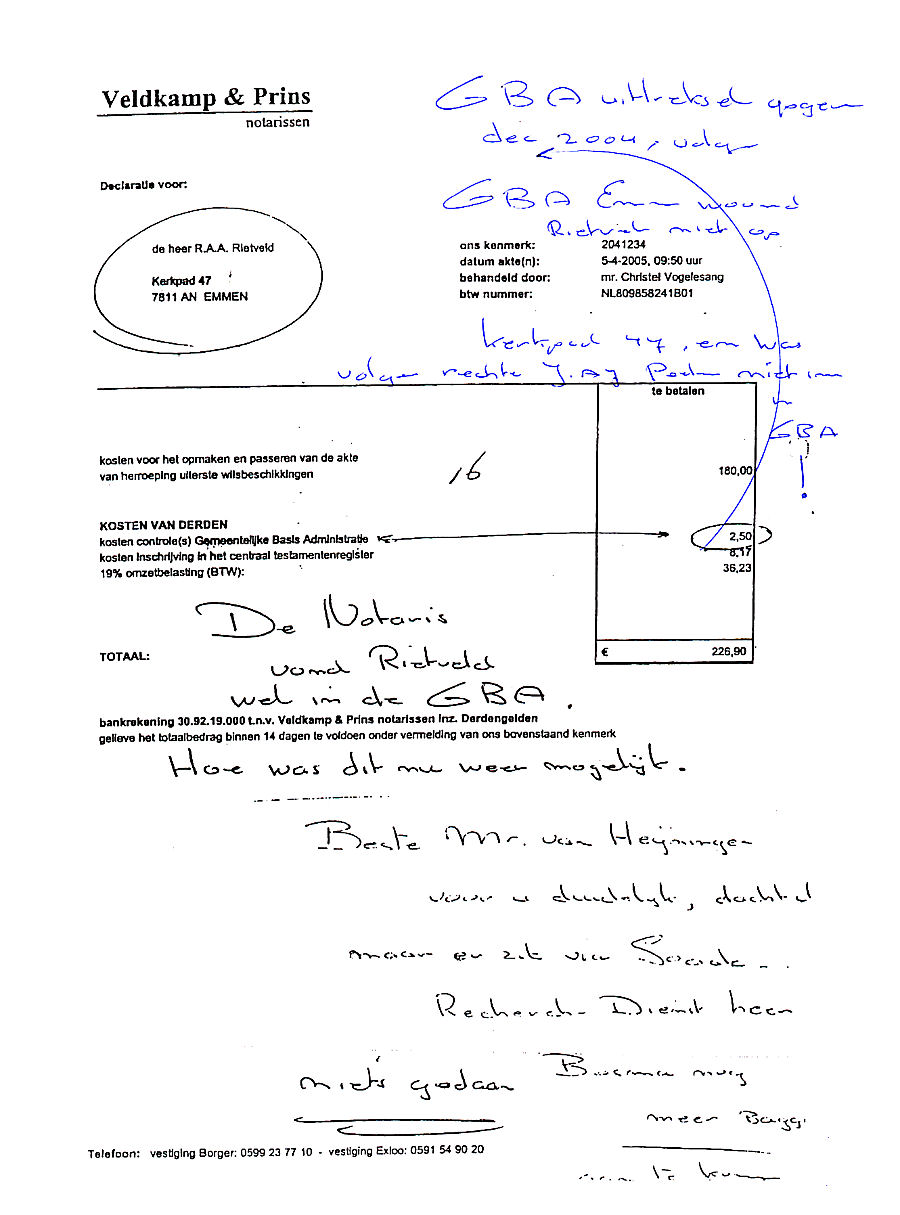 Veldkamp & Prins
notarissen
GBA uittreksel
dec 2004, volgens
GBA Emmen woond
niet op
Declaratie voor:
de heer R.A.A. Rietveld
Kerkpad 47
7811 AN EMMEN
ons kenmerk: 2041234
datum akte(n): 5-4-2005, 09:50 uur
behandeld door: mr. Christel Vogelesang
btw nummer: NL809858241B01
Kerkpad 47, en was
rechte niet in
GBA
!
te betalen
kosten voor het opmaken en passeren van de akte
van herroeping uiterste wilsbeschikkingen 180,00
16
KOSTEN VAN DERDEN
kosten controle(s) Gemeentelijke Basis Administratie 2,50
kosten inschrijving in het centraal testamentenregister 8,17
19% omzetbelasting (BTW): 36,23
De Notaris
TOTAAL: € 226,90
vond Rietveld
wel in de GBA.
bankrekening 30.92.19.000 t.n.v. Veldkamp & Prins notarissen inz. Derdengelden
gelieve het totaalbedrag binnen 14 dagen te voldoen onder vermelding van ons bovenstaand kenmerk
Hoe was dit nu weer mogelijk.
Beste Mr. van Heijningen
voor u duidelijk, dacht
maar er zit
Dienst heen
niets gedaan
meer
Telefoon: vestiging Borger: 0599 23 77 10 - vestiging Exloo: 0591 54 90 20